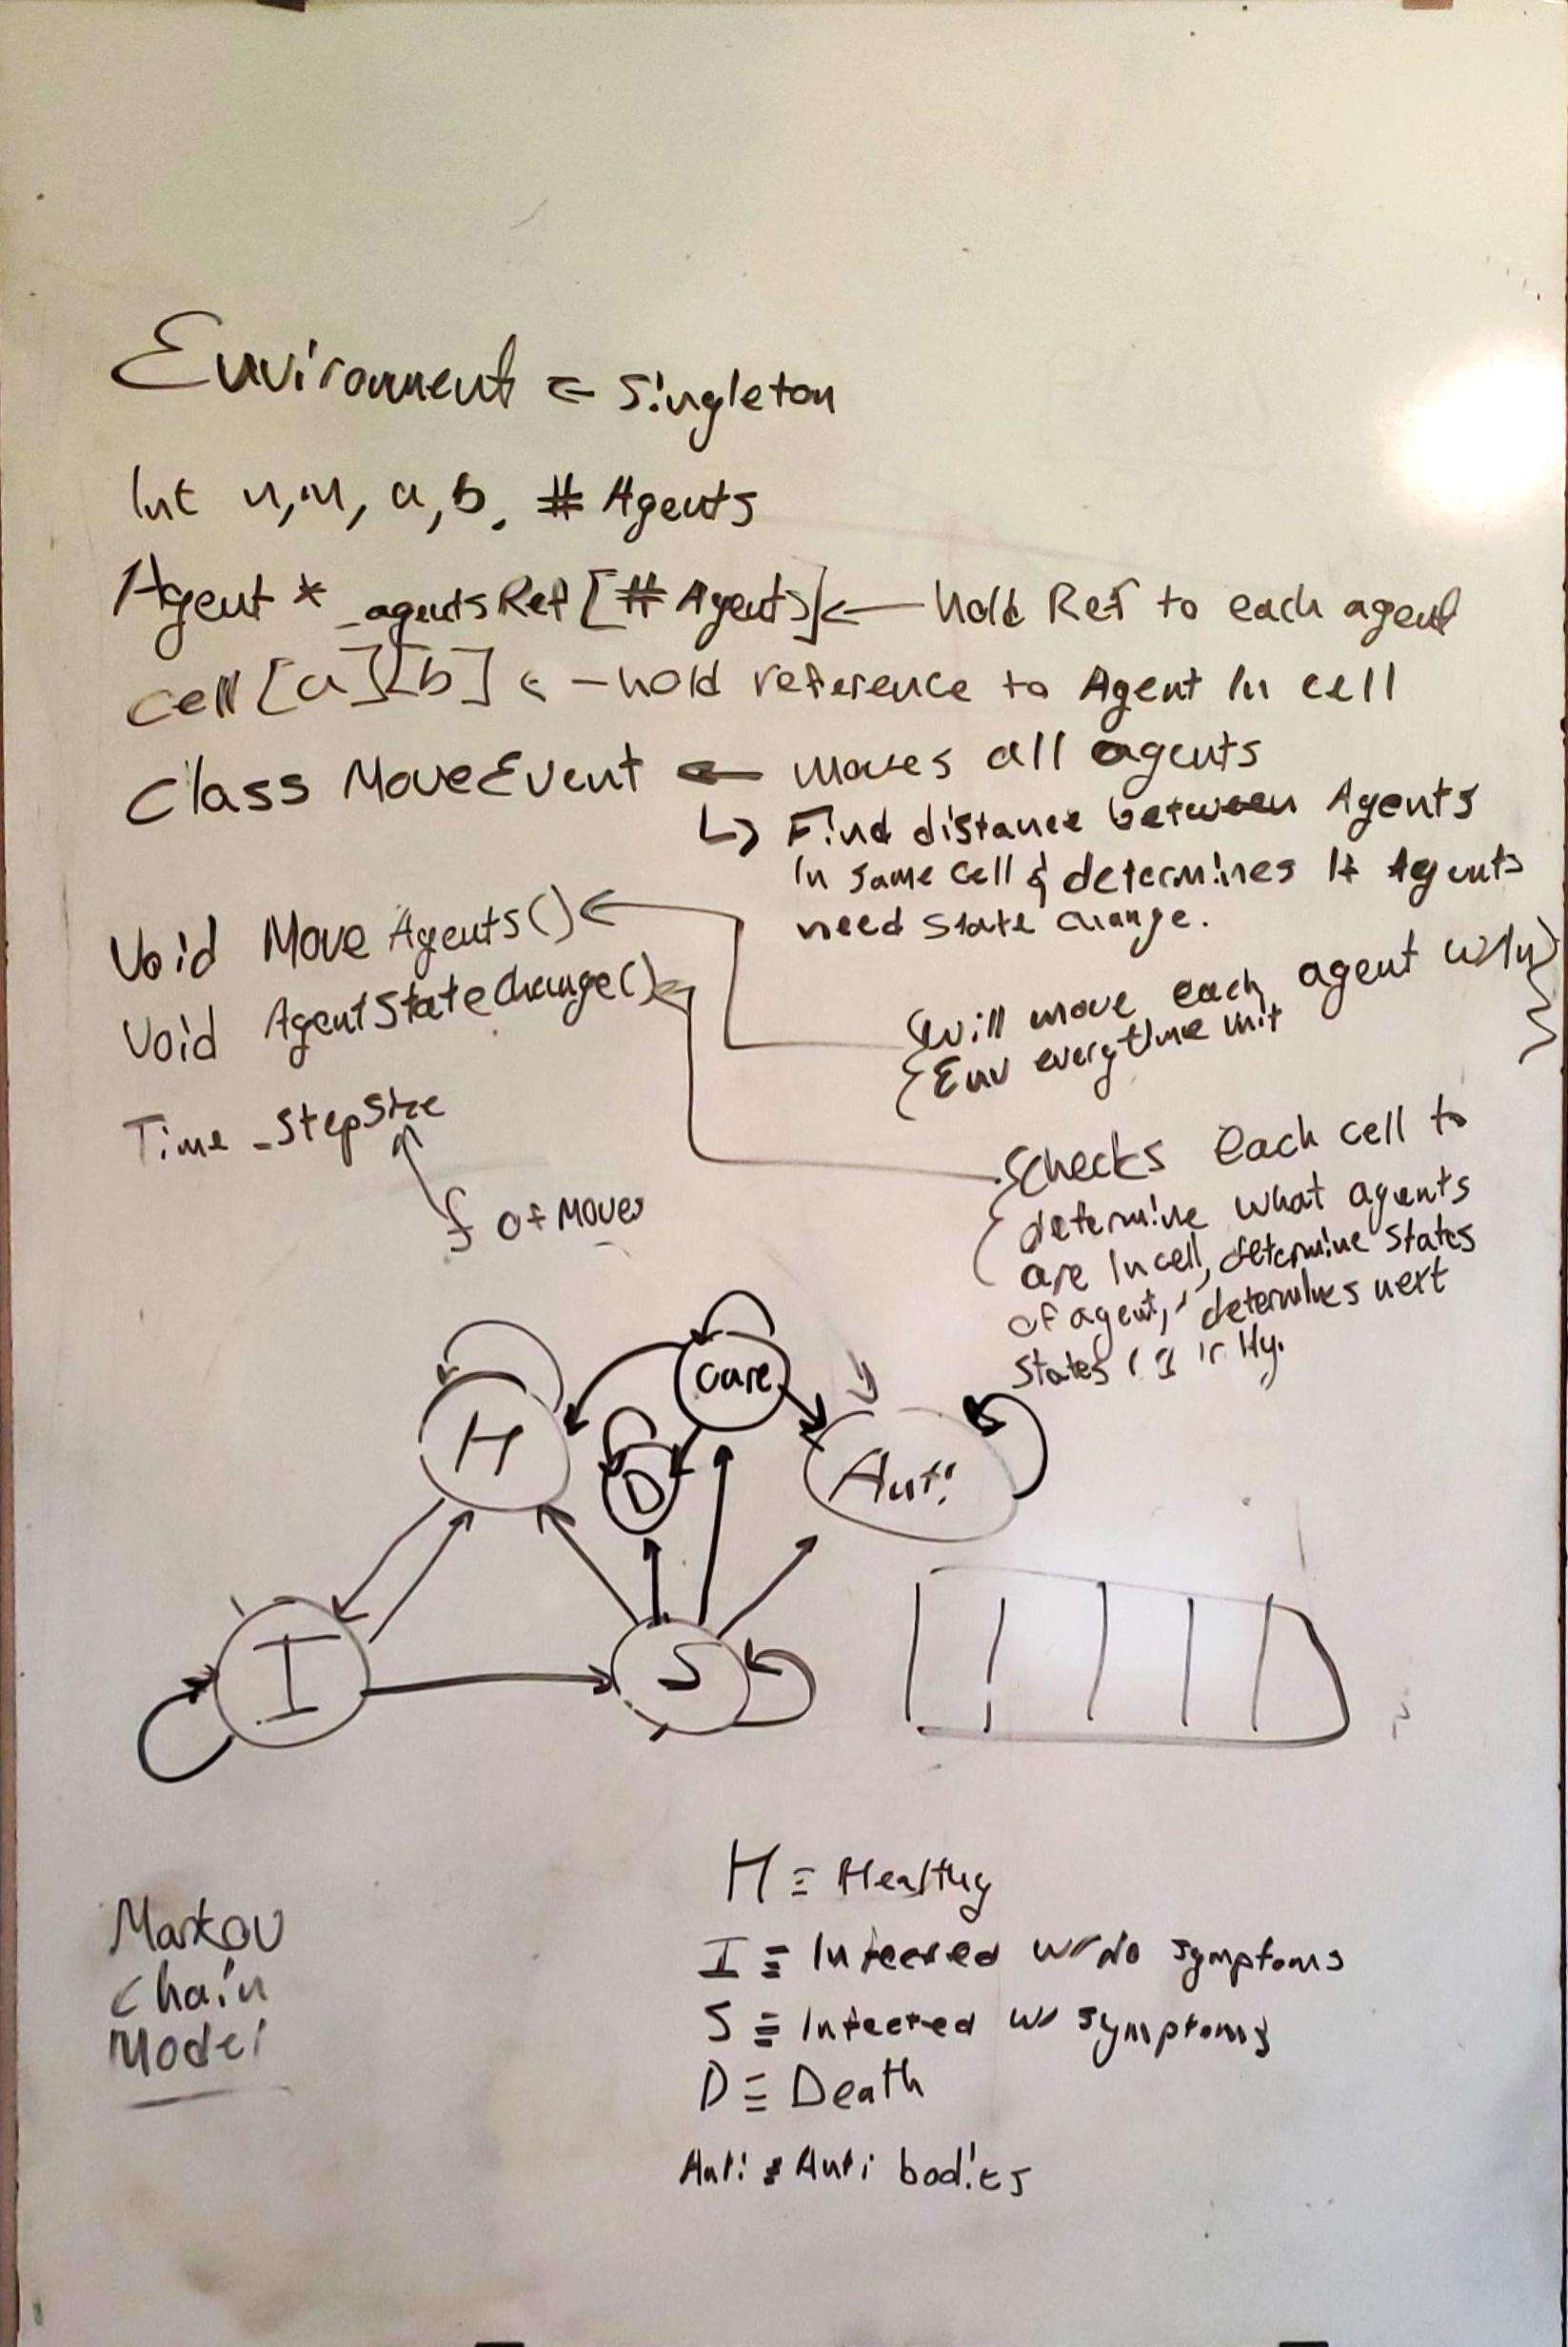 Environment ← Singleton
Int n,m, a,b, # Agents
Agent * _agentsRef [# Agents] ← hold Ref to each agent
cell [a][b] ← hold reference to Agent In cell
Class MoveEvent ← moves all agents
↳ Find distance between Agents
In same cell & determines If Agents
need state change.
Void Move Agents()
Void AgentStateChange()
will move each agent w/in
Env every time unit
Time _StepSize
f of Moves
Checks each cell to
determine what agents
are In cell, determine states
of agent, determines next
states
Care
H
D
Anti
I
S
Markov
Chain
Model
H ≡ Healthy
I ≡ Infected w/ no symptoms
S ≡ Infected w/ symptoms
D ≡ Death
Anti ≡ Anti bodies